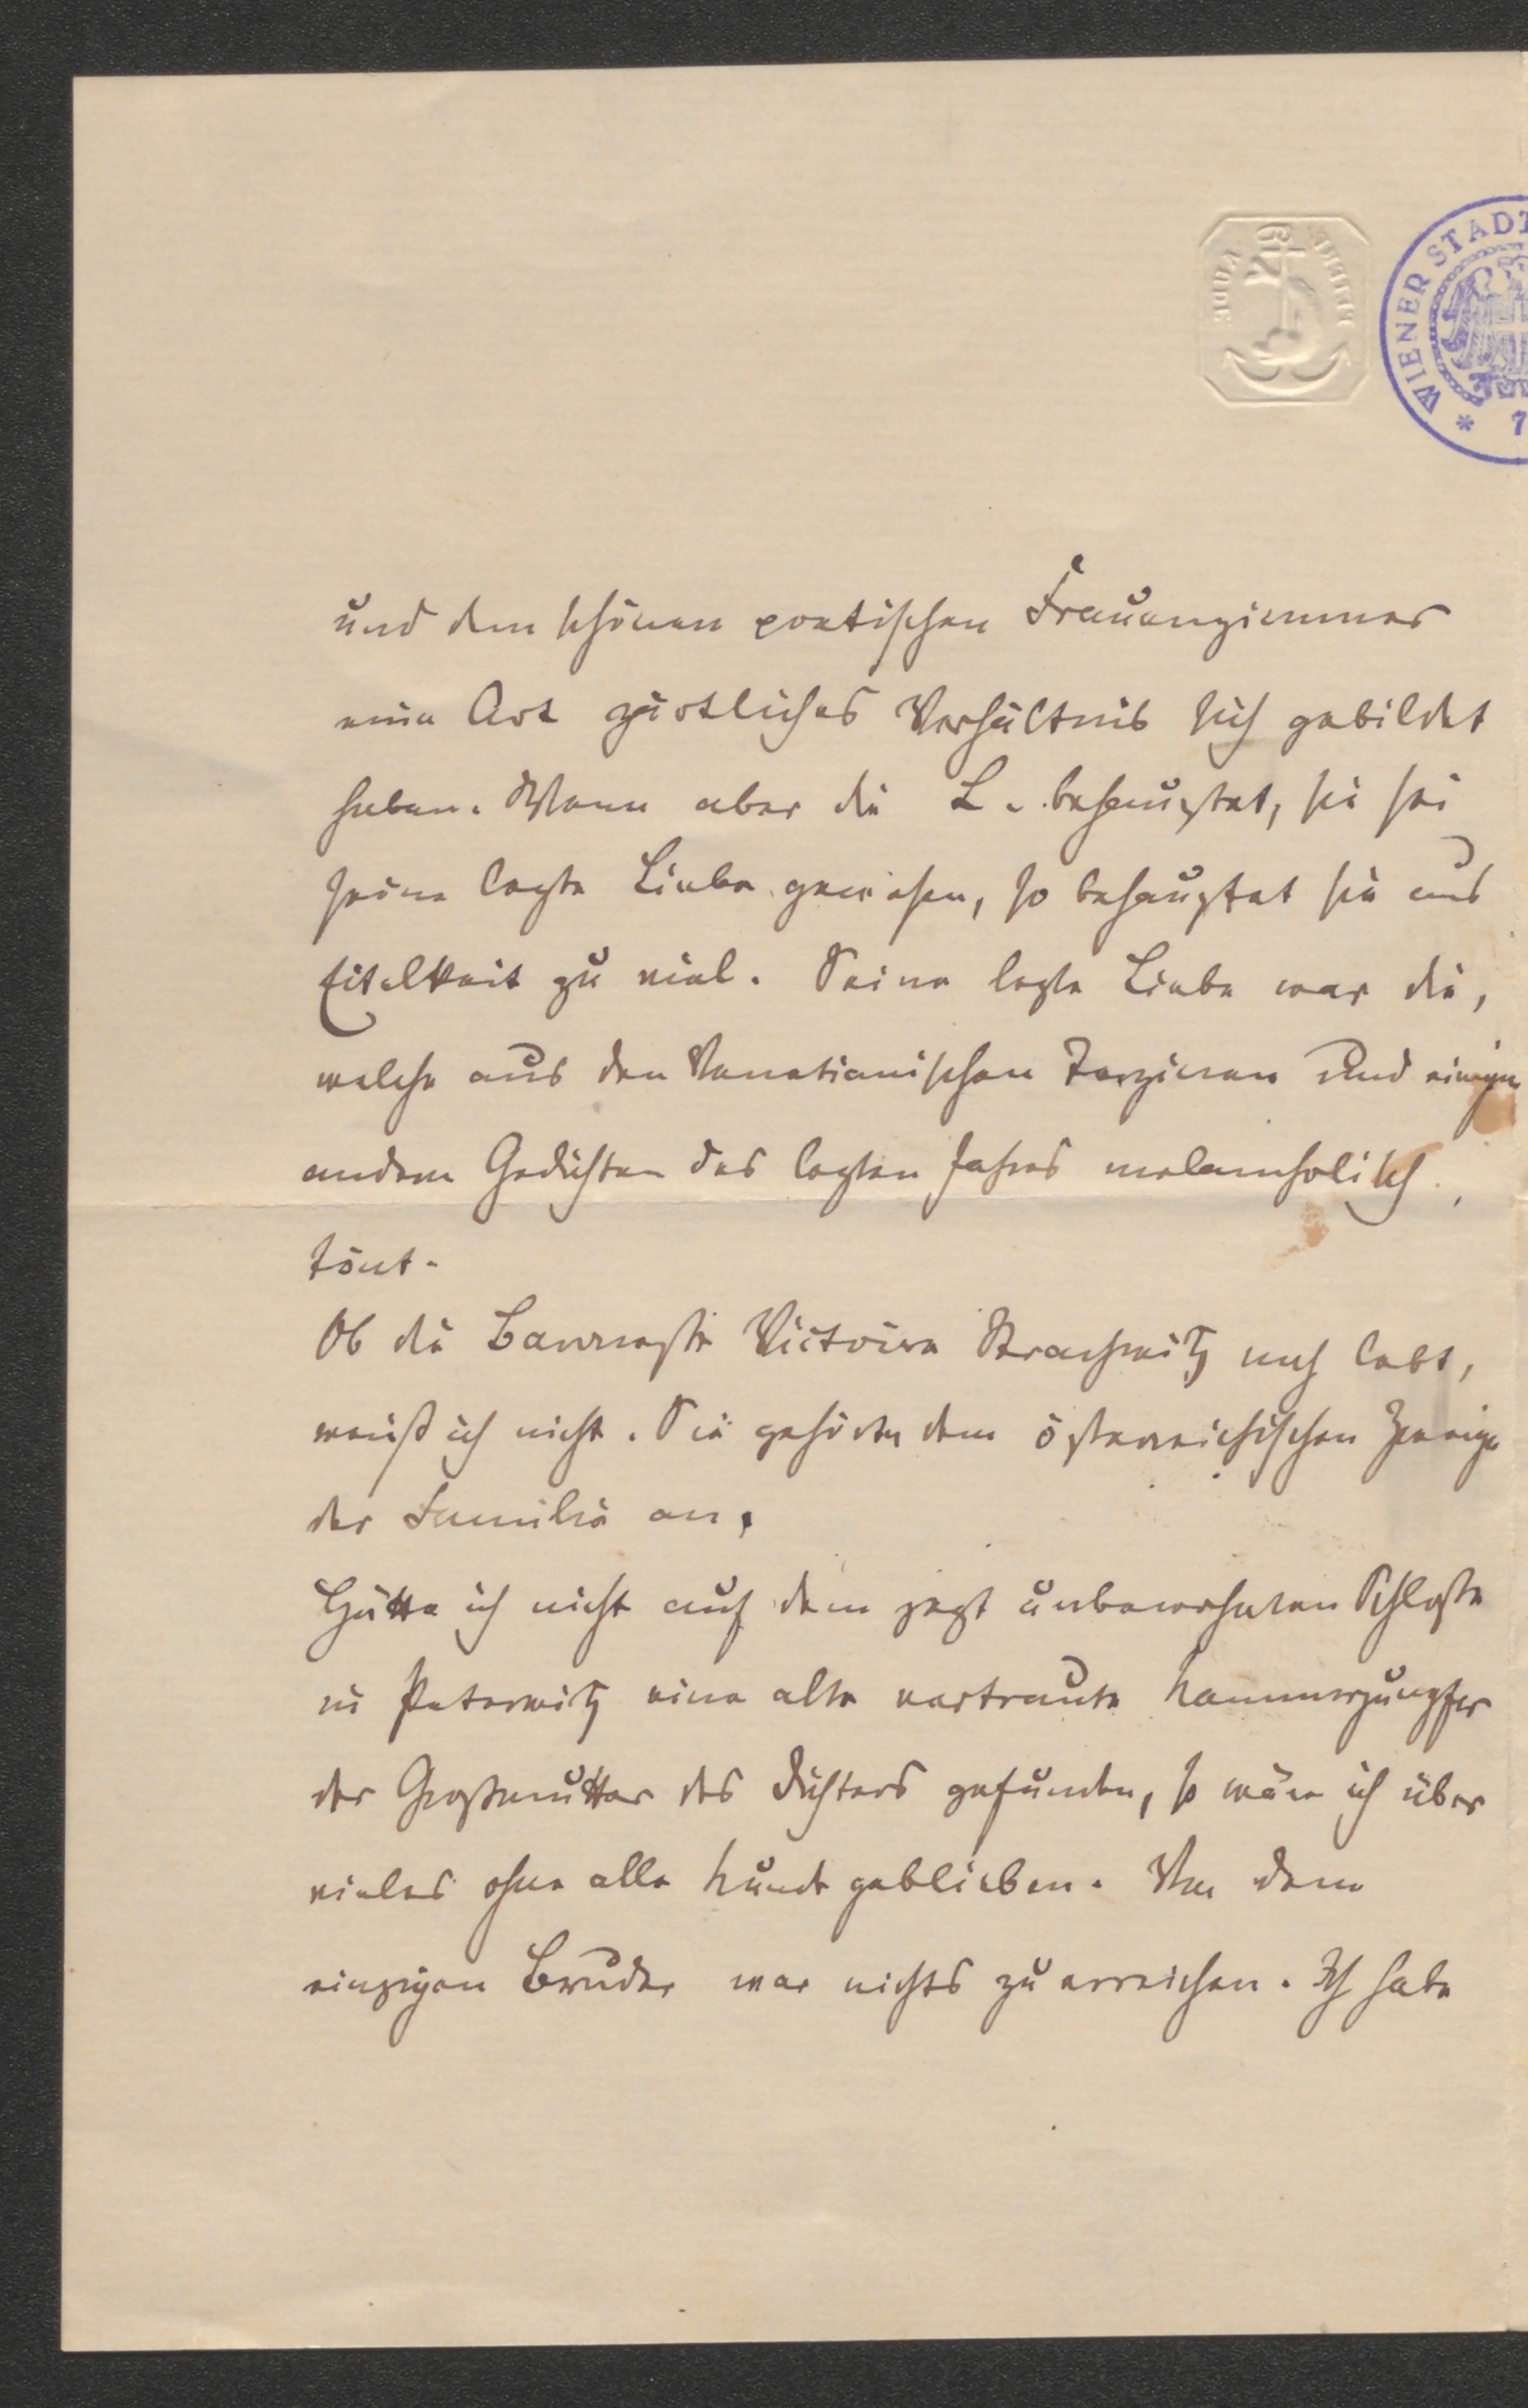 WIENER STADT
* 7
und dem schönen poetischen Frauenzimmer
eine Art zärtliches Verhältnis sich gebildet
haben. Wenn aber die L. behauptet, sie sei
seine letzte Liebe gewesen, so behauptet sie aus
Eitelkeit zu viel. Seine letzte Liebe war die,
welche aus den Venetianischen Terzinen und einigen
andern Gedichten des letzten Jahres melancholisch
tönt.
Ob die Baronesse Victoire Strachwitz noch lebt,
weiß ich nicht. Sie gehörte dem österreichischen Zweige
der Familie an.
Hätte ich nicht auf dem jetzt unbewohnten Schlosse
in Peterwitz eine alte vertraute Kammerjungfer
der Großmutter des Dichters gefunden, so wäre ich über
vieles ohne alle Kunde geblieben. Von dem
einzigen Bruder war nichts zu erreichen. Ich habe